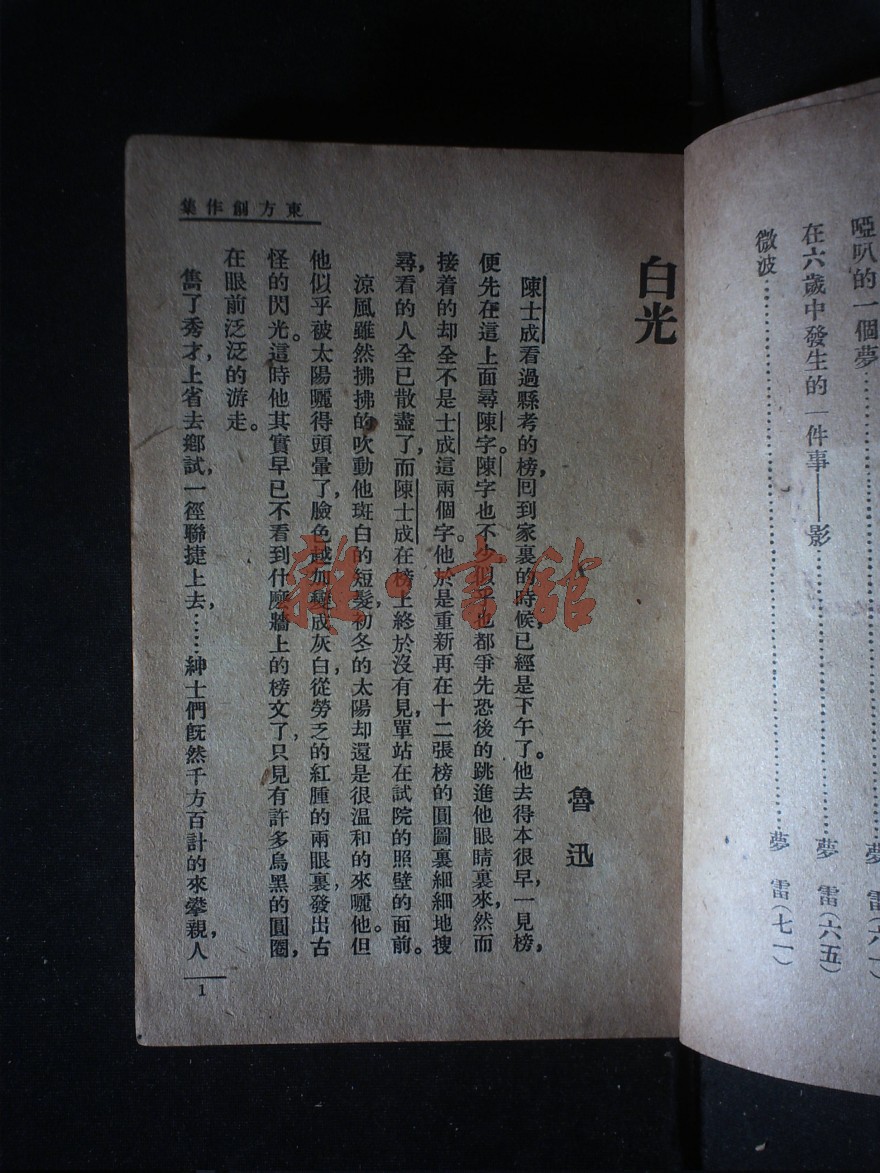 啞叭的一個夢……夢 雷(六一)
在六歲中發生的一件事——影……夢 雷(六五)
微波……夢 雷(七一)
東方創作集
白光
魯迅
陳士成看過縣考的榜，回到家裏的時候，已經是下午了。他去得本很早，一見榜，
便先在這上面尋陳字。陳字也不少，似乎也都爭先恐後的跳進他眼睛裏來，然而
接着的却全不是士成這兩個字。他於是重新再在十二張榜的圓圖裏細細地搜
尋，看的人全已散盡了，而陳士成在榜上終於沒有見，單站在試院的照壁的面前。
涼風雖然拂拂的吹動他斑白的短髮，初冬的太陽却還是很溫和的來曬他。但
他似乎被太陽曬得頭暈了，臉色越加變成灰白，從勞乏的紅腫的兩眼裏，發出古
怪的閃光。這時他其實早已不看到什麽牆上的榜文了，只見有許多烏黑的圓圈，
在眼前泛泛的游走。
雋了秀才，上省去鄉試，一徑聯捷上去，……紳士們旣然千方百計的來攀親，人
1
雜·書館